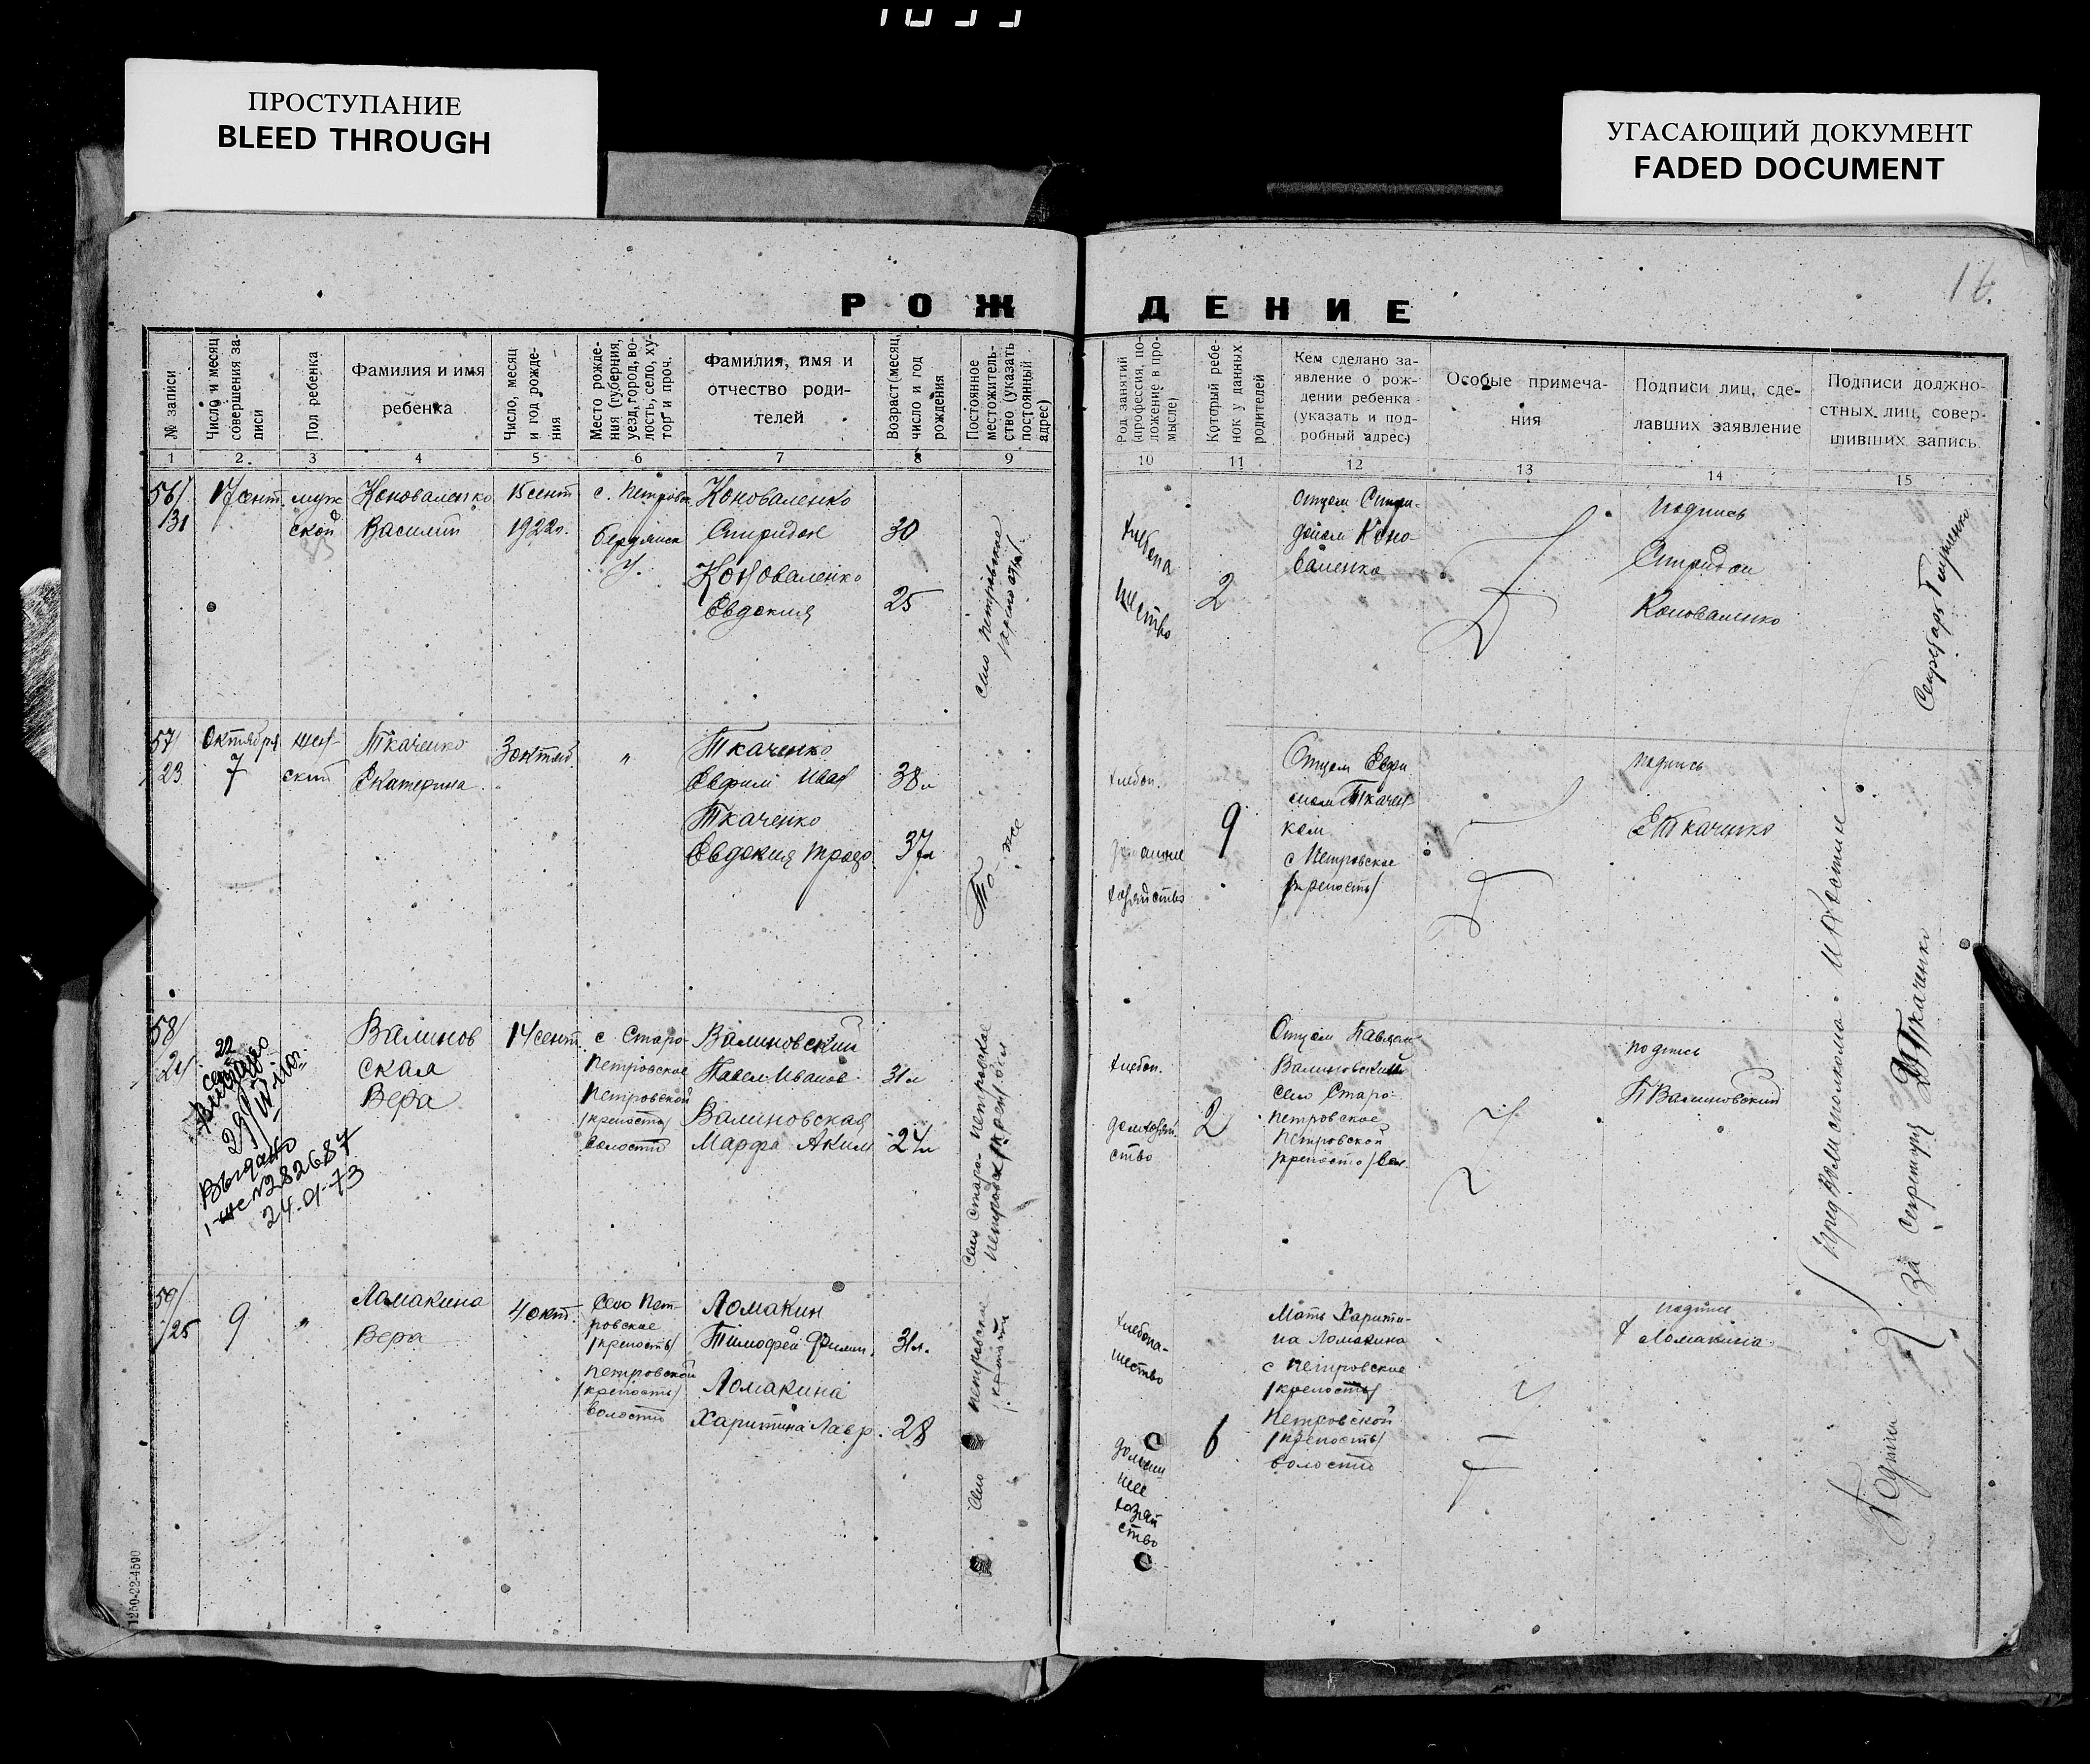 ПРОСТУПАНИЕ
BLEED THROUGH
УГАСАЮЩИЙ ДОКУМЕНТ
FADED DOCUMENT
16.
РОЖ
ДЕНИЕ
№ записи
Число и месяц
совершения за-
писи
Пол ребенка
Фамилия и имя
ребенка
Число, месяц
и год рожде-
ния
Место рожде-
ния (губерния,
уезд, город, во-
лость, село, ху-
тор и проч.
Фамилия, имя и
отчество роди-
телей
Возраст (месяц,
число и год
рождения
Постоянное
местожитель-
ство (указать
постоянный
адрес)
Род занятий
(профессия, по-
ложение в про-
мысле)
Который ребе-
нок у данных
родителей
Кем сделано за-
явление о рож-
дении ребенка
(указать и под-
робный адрес)
Особые примеча-
ния
Подписи лиц, сде-
лавших заявление
Подписи должно-
стных лиц, совер-
шивших запись
1 2 3 4 5 6 7 8 9
10 11 12 13 14 15
56/
31
17 сент.
муж
ской
Коноваленко
Василий
15 сент
1922г.
с. Петровск
бердянск
у.
Коноваленко
Спиридон
30
Коноваленко
Евдокия
25
Село Петровское
хлебопа
шество
2
отцом Спири-
доном Коно-
валенко
подпись
Спиридон
Коноваленко
Секретарь
57/
23
Октября
7
жен-
ский
Ткаченко
Екатерина
3 октяб.
"
Ткаченко
Евфим Иван
38л
Ткаченко
Евдокия
37л
То-же
хлебоп.
домашнее
хозяйство
9
Отцом Евфи
мом Ткачен
ком
с Петровское
/крепость/
подпись
Е Ткаченко
58/
24
22
сен
Выдано
1-ЖС №282687
24-01-73
Валинов
ская
Вера
14 сент.
с. Старо-
Петровское
Петровской
/крепость/
волости
Валиновский
Павел Иванов
31л
Валиновская
Марфа Аким
24л
Село Старо-Петровское
хлебоп.
домхозяй
ство
2
Отцом Павлом
Валиновским
село Старо-
Петровское
Петровской
/крепость/ вол.
подпись
П Валиновский
59/
25
9
"
Ломакина
Вера
4 окт.
Село Пет-
ровское
/крепость/
Петровской
/крепость/
волости
Ломакин
Тимофей Филип.
31л.
Ломакина
Харитина Лавр.
28
Село Петровское
хлебопа-
шество
домаш
нее
хозяй
ство
6
Мать Харити-
на Ломакина
с Петровское
/крепость/
Петровской
/крепость/
волости
подпис
Х Ломакина
За секретаря Ткаченко
1250-22-4590